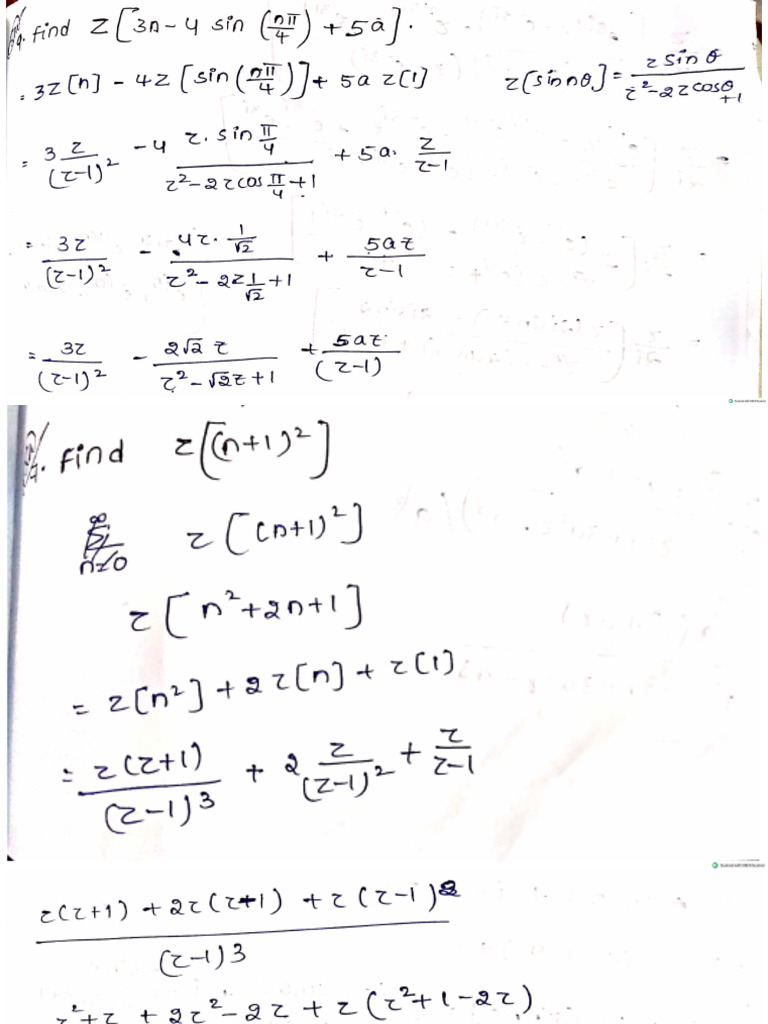 q. find Z[3n - 4 sin (nπ/4) + 5a].
= 3Z[n] - 4Z[sin(nπ/4)] + 5a Z(1)
Z[sin nθ] = z sinθ / z² - 2z cosθ + 1
= 3 z/(z-1)² - 4 z. sin π/4 / z² - 2z cos π/4 + 1 + 5a. z/z-1
= 3z/(z-1)² - 4z. 1/√2 / z² - 2z 1/√2 + 1 + 5az/z-1
= 3z/(z-1)² - 2√2 z / z² - √2z + 1 + 5az/(z-1)
q. find z[(n+1)²]
z[(n+1)²]
z[n²+2n+1]
= z[n²] + 2z[n] + z(1)
= z(z+1)/(z-1)³ + 2 z/(z-1)² + z/z-1
z(z+1) + 2z(z-1) + z(z-1)² / (z-1)³
z²+z + 2z² - 2z + z(z²+1-2z)